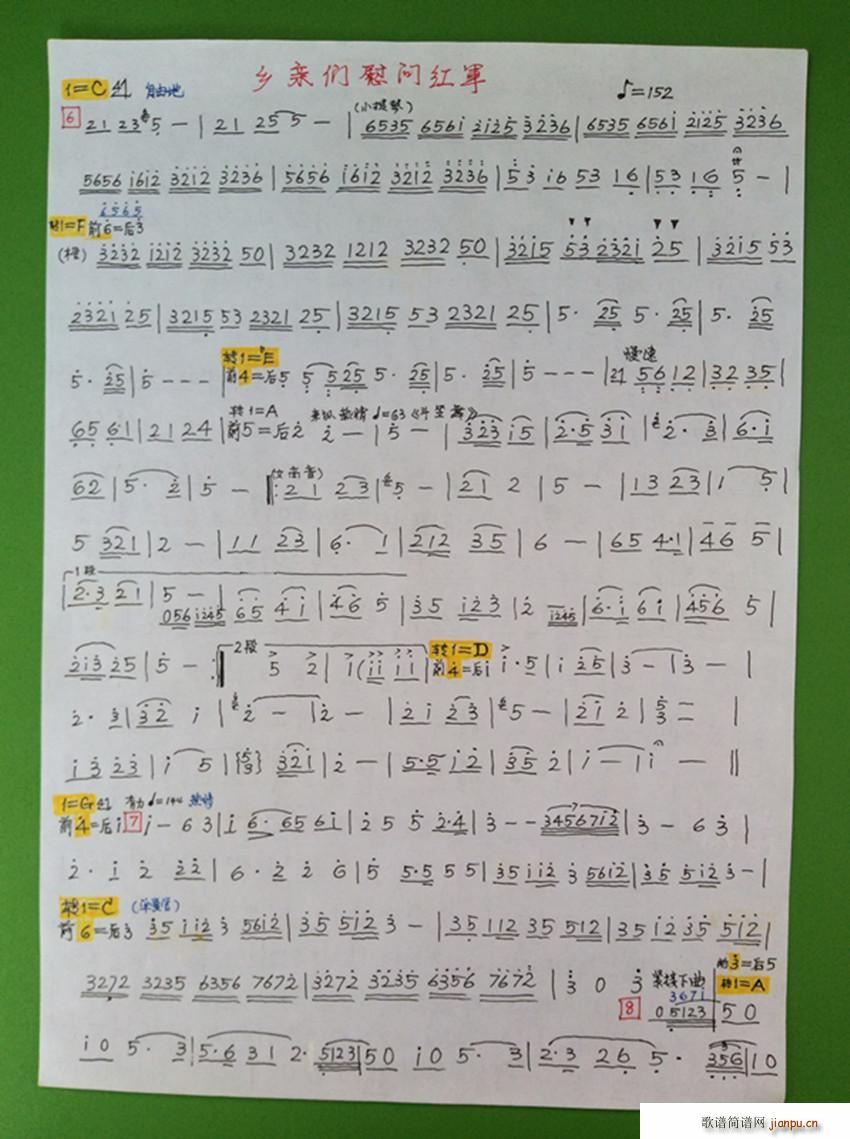 乡亲们慰问红軍
1=C 自由地 ♪=152
6 21 235 — | 21 25 5 — | (小提琴) 6535 656i 2i25 3236 | 6535 656i 2125 3236
5656 i6i2 32i2 3236 | 5656 i6i2 32i2 3236 | 53 i6 53 16 | 53 16 5 — |
6565
转1=F 前6=后3
3232 i2i2 3232 50 | 3232 1212 3232 50 | 32i5 53 232i 25 | 32i5 53
232i 25 | 3215 53 2321 25 | 3215 53 2321 25 | 5· 25 5· 25 | 5· 25
5· 25 | 5 - - - | 转1=E 前4=后5 5 5 25 5· 25 | 5· 25 | 5 - - - | 慢速 56 12 | 32 35 |
65 61 | 21 24 | 转1=A 前5=后2 热情 ♩=63 2 — | 5 — | 323 i5 | 2·5 3i | 2· 3 | 6·i
62 | 5· 2 | 5 — (女高音) 21 23 | 5 — | 21 2 | 5 — | 13 23 | 1 5 |
5 321 | 2 — | 11 23 | 6· 1 | 212 35 | 6 — | 65 4·1 | 46 5 |
1段
2·3 21 | 5 — | 056 i245 65 4i | 46 5 | 35 i23 | 2 i245 | 6·i 6i | 456 5 |
2i3 25 | 5 — 2段 5 2 | i (ii ii | 转1=D 前4=后i i·5 | i 25 | 3 — | 3 — |
2· 3 | 32 i | 2 — | 2 — | 2i 23 | 5 — | 2i 2 | 5 3 = |
i3 23 | i 5 | 53 32i | 2 — | 5·5 i2 | 35 2 | i — | i — ||
1=G 有力 ♩=144 热情
前4=后i 7 i — 6 3 | i 6· 65 6i | 2 5 5 2·4 | 3 - - 34567i2 | 3 — 6 3 |
2· i 2 22 | 6· 2 2 6 | 5 5·5 5 5 | 35 ii2 3 56i2 | 35 5i2 3 — |
转1=C
前6=后3 35 ii2 3 56i2 | 35 5i2 3 — | 35 112 35 512 | 35 i2 35 5i2 |
3272 3235 6356 7672 | 3272 3235 6356 7672 | 3 0 3 紧接下曲
367i
前3=后5
转1=A
8 05123 50
i0 5· 3 | 5·6 31 2· 5123 | 50 i0 5· 3 | 2·3 26 5· 356 | 10
歌谱简谱网 jianpu.cn